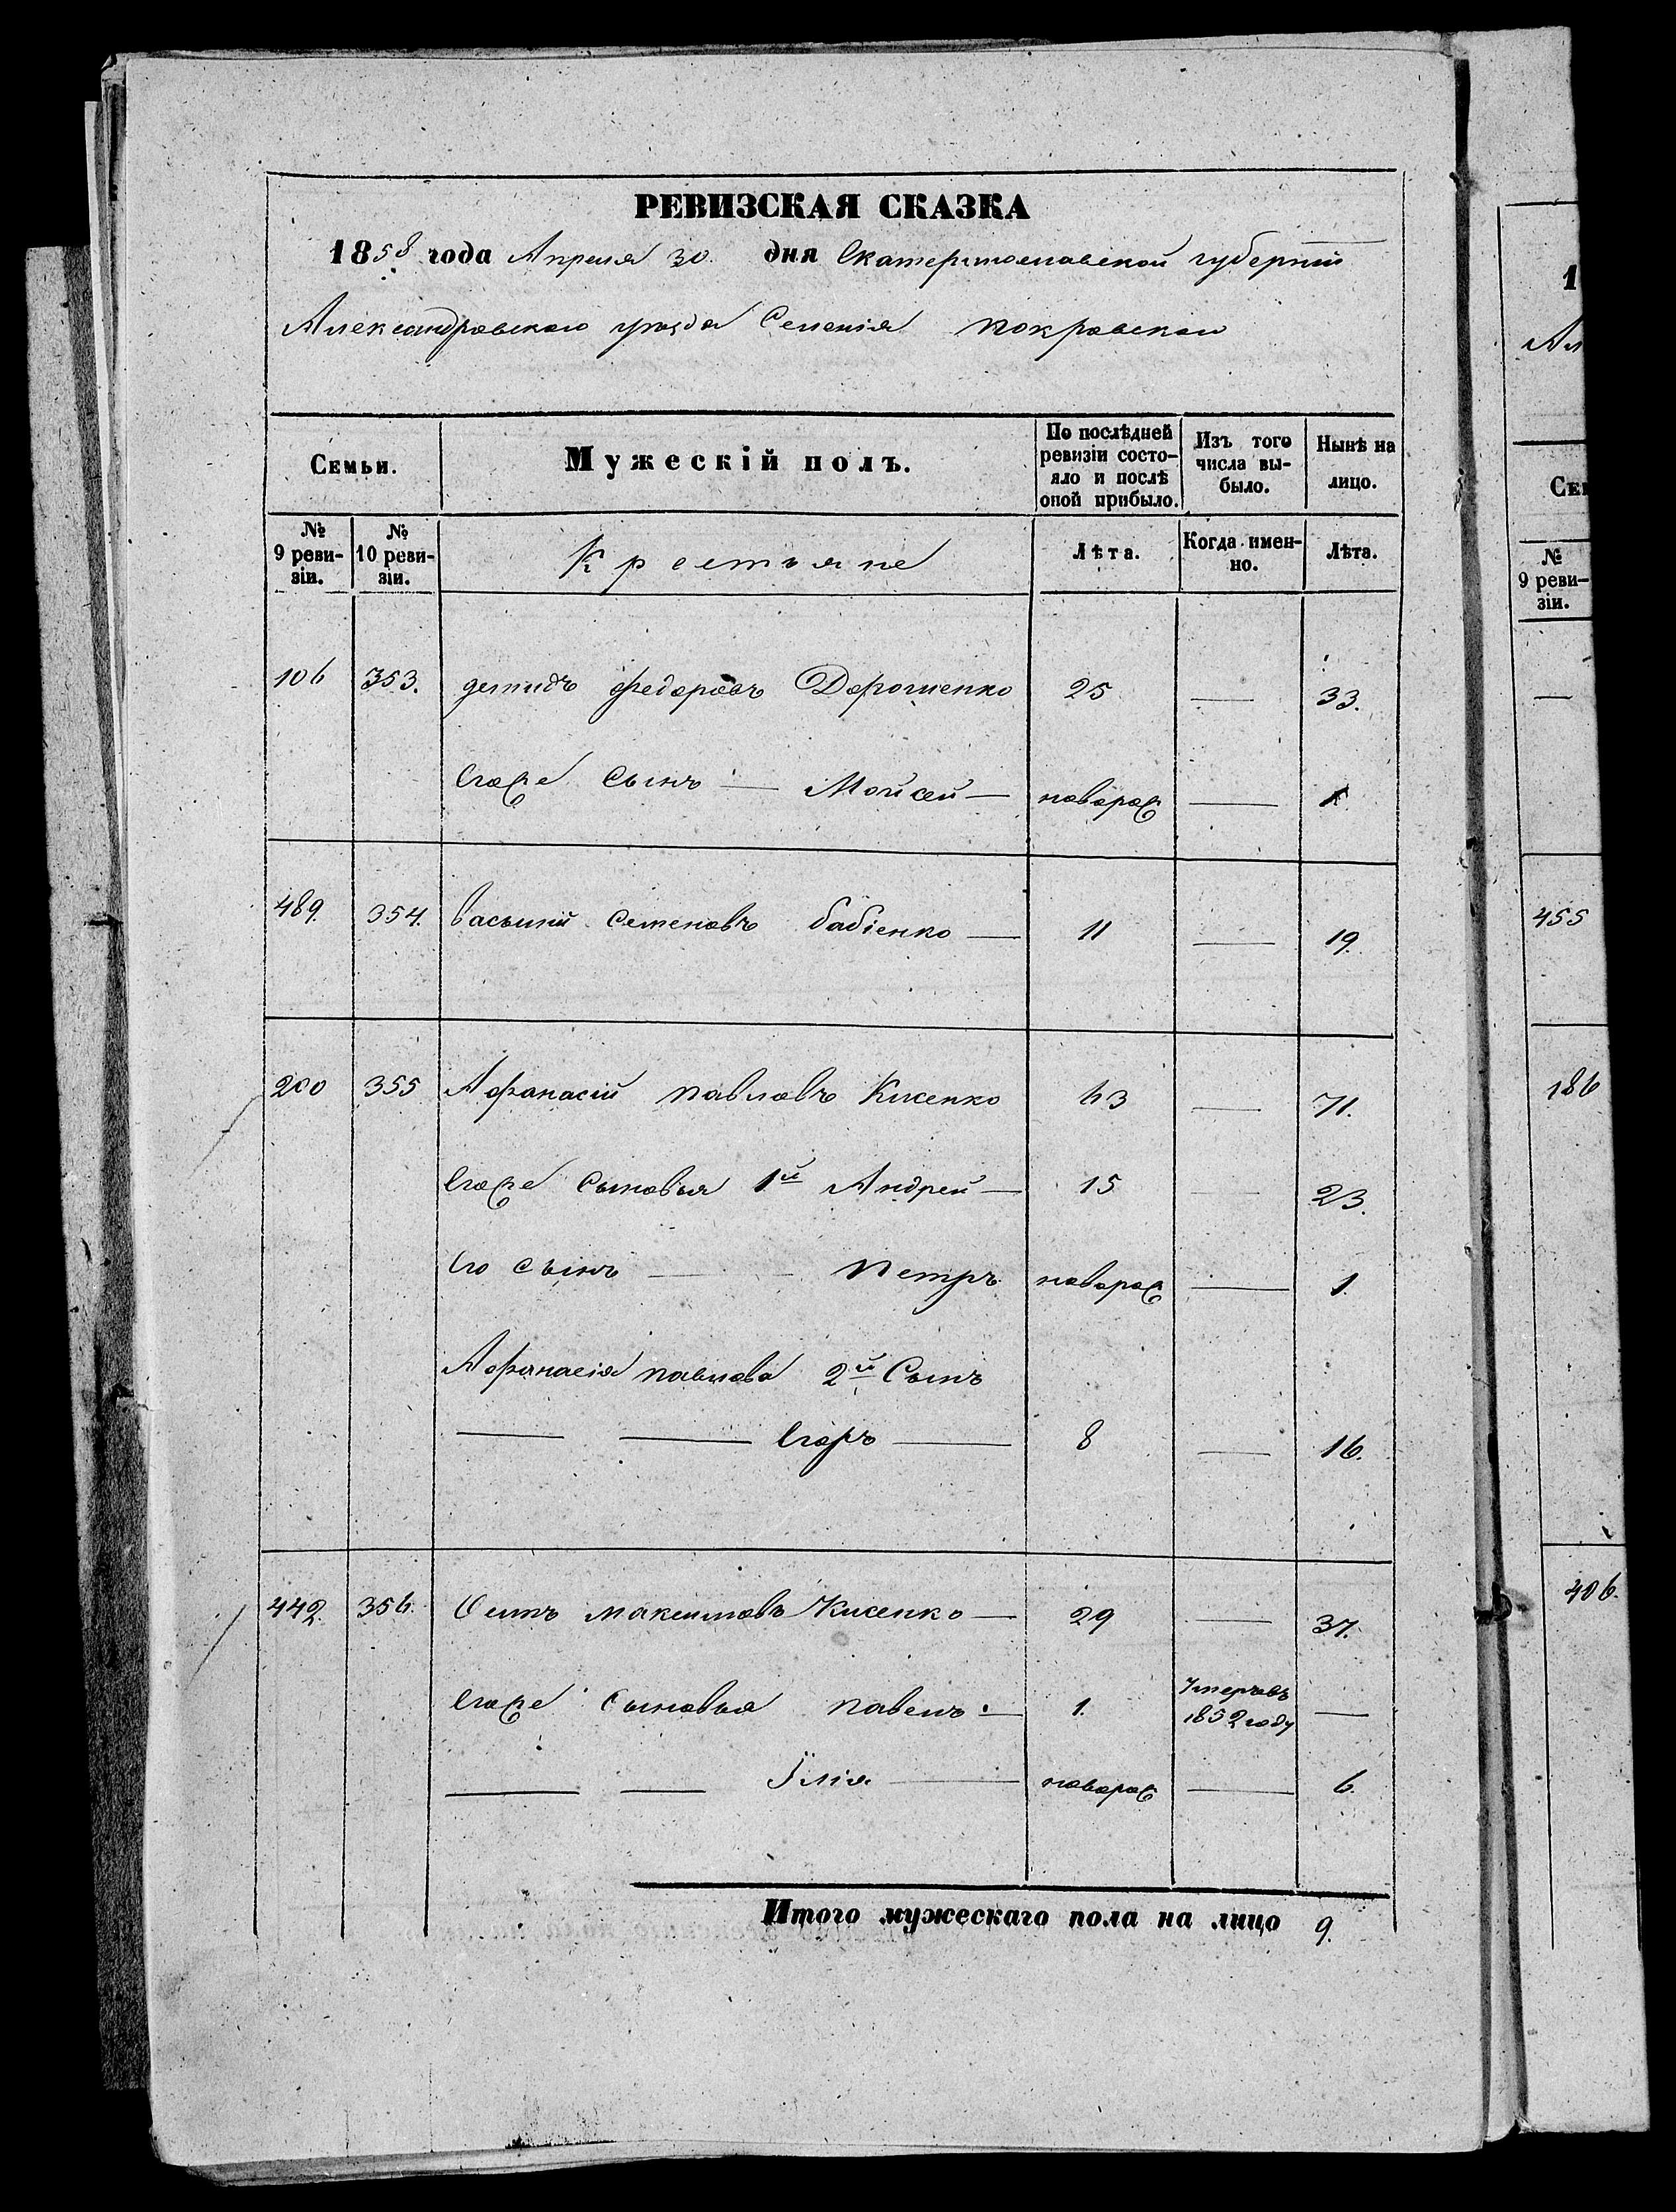 РЕВИЗСКАЯ СКАЗКА
1858 года Апреля 30. дня Екатеринославской губернии
Александровского уезда Селенія покровского
Семьи.
Мужескій полъ.
По послѣдней ревизіи состо-
яло и послѣ
оной прибыло.
Изъ того
числа вы-
было.
Нынѣ на
лицо.
№
9 реви-
зіи.
№
10 реви-
зіи.
Крестьяне
Лѣта.
Когда имен-
но.
Лѣта.
106 353. демидъ федоровъ Дорошенко 25 — 33.
Егоже Сынъ — Мойсей — новорож — 1.
489. 354. Василий Семеновъ бабіенко — 11 — 19.
200 355 Афанасій павловъ Кисенко 63 — 71.
Егоже Сыновья 1й Андрей — 15 — 23.
Его Сынъ — Петръ новорож — 1.
Афанасія павлова 2й Сынъ
— — Егоръ — 8 — 16.
442. 356. Осипъ максимовъ Кисенко — 29 — 37.
Егоже Сыновья павелъ — 1. Умеръ въ
1852 году —
— — Ілія — новорож — 6.
Итого мужескаго пола на лицо 9.
1
Ал
Се
№
9 реви-
зіи.
—
455
186
406.